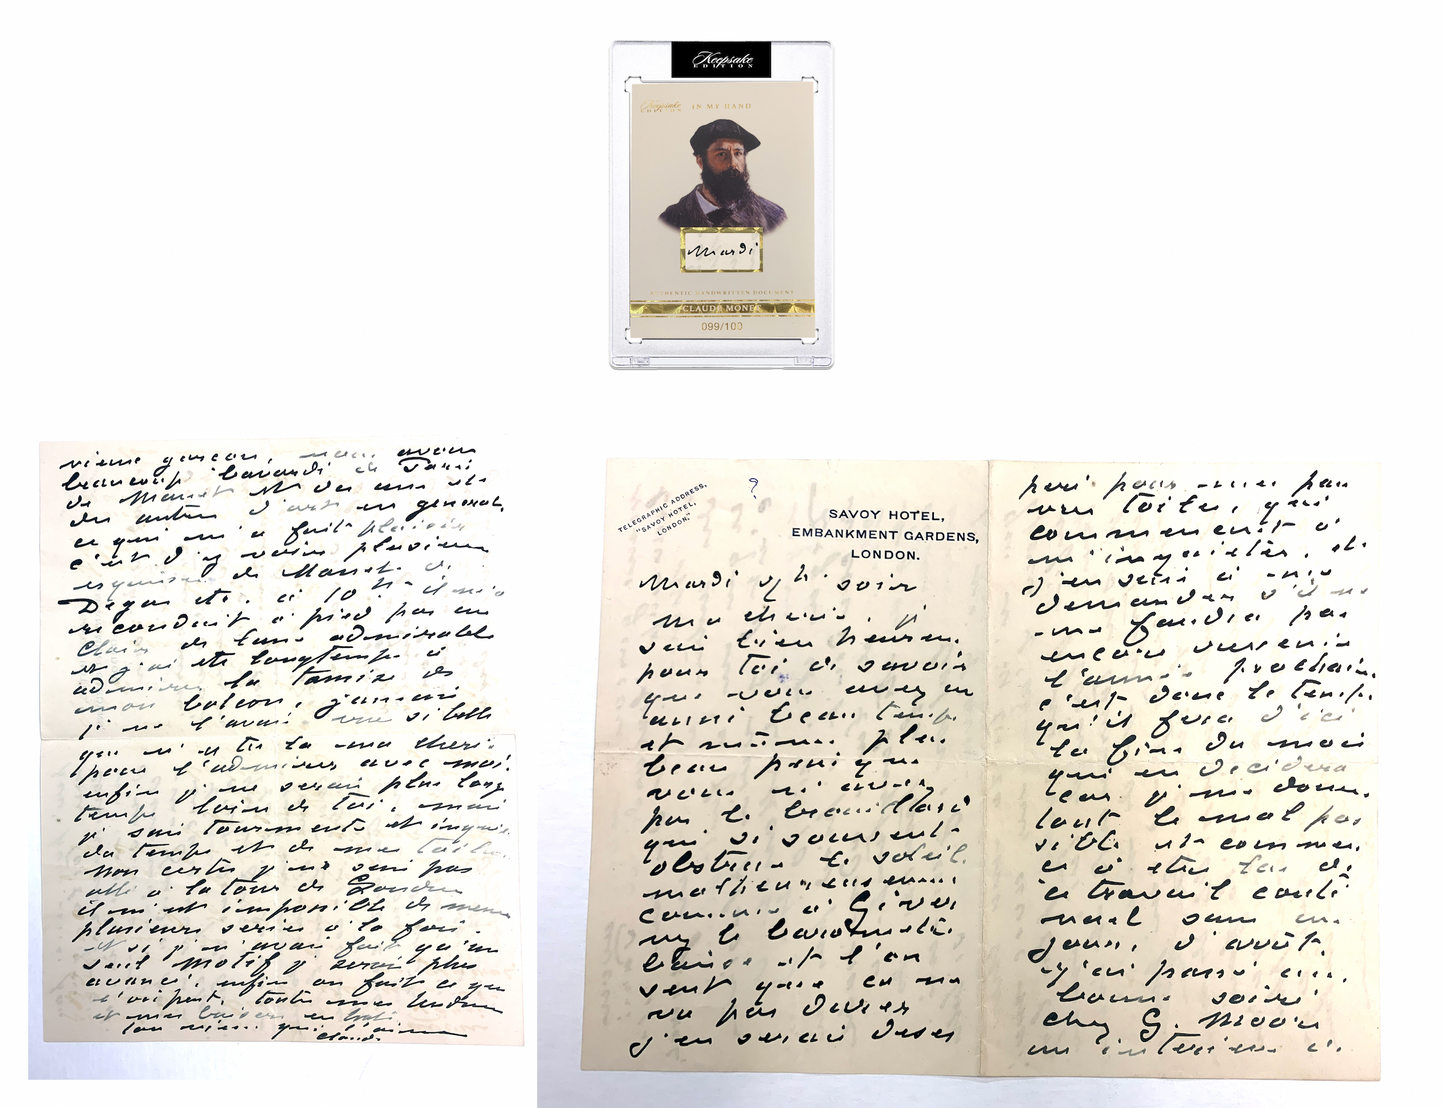 Keepsake
EDITION
Keepsake
EDITION
IN MY HAND
Mardi
AUTHENTIC HANDWRITTEN DOCUMENT
CLAUDE MONET
099/100
vieux garçon, nous avons
beaucoup bavardé de Paris
de Manet et de
des autres d'art en général,
ce qui m'a fait plaisir
c'est d'y voir plusieurs
esquisses de Manet de
Degas etc. à 10 h il m'a
reconduit à pied par un
clair de lune admirable
et j'ai été longtemps à
admirer la tamise de
mon balcon, jamais
je ne l'avais vue si belle
que n'es tu là ma cherie
pour l'admirer avec moi.
enfin je ne serai plus long
temps loin de toi, mais
je suis tourmenté et inquiet
du temps et de mes toiles.
non certes je ne suis pas
allé à la tour de Londres
il m'est impossible de mener
plusieurs series à la fois.
et si je n'avais fait qu'un
seul motif je serais plus
avancé, enfin on fait ce que
l'on peut. toutes mes tendresses
et mes baisers
ton vieux qui t'aime
Claude
TELEGRAPHIC ADDRESS,
"SAVOY HOTEL,
LONDON."
?
SAVOY HOTEL,
EMBANKMENT GARDENS,
LONDON.
Mardi h. soir
Ma cherie, je
suis bien heureux
pour toi de savoir
que vous avez un
aussi beau temps
et même plus
beau puisque
vous n'avez
pas le brouillard
qui si souvent
obstrue le soleil.
malheureusement
comme à Giverny
le baromètre
baisse et l'on
sent que ça ne
va pas durer
j'en serais deses
peré pour mes pau
vres toiles, qui
commencent à
m'inquieter, et
j'en suis à me
demander s'il ne
me faudra pas
encore revenir
l'année prochaine
c'est donc le temps
qu'il fera d'ici
la fin du mois
qui en décidera
car je me donne
tout le mal pos
sible et commen
ce à être las de
ce travail conti
nuel sans un
jour, d'arrêt
j'ai passé une
bonne soirée
chez G. Moore
un interieur de